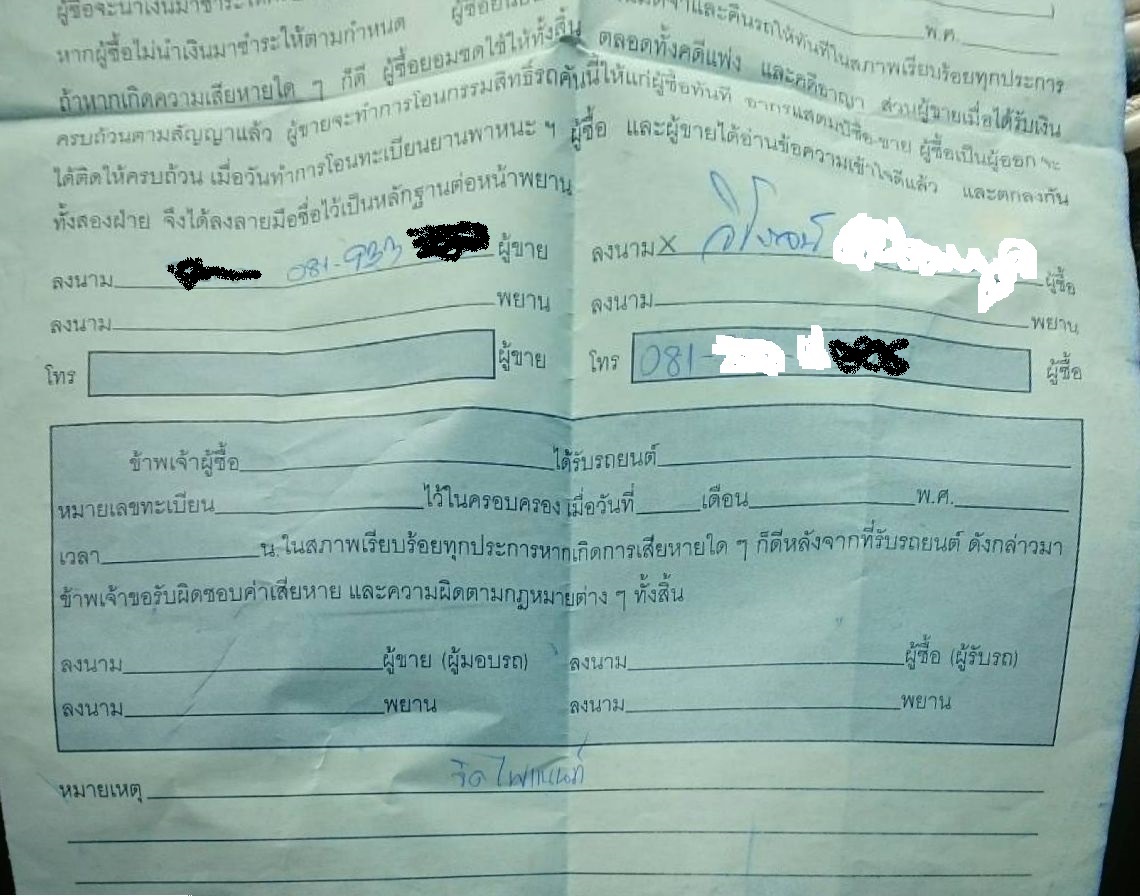 ผู้ซื้อจะนำเงินมาชำระ
พ.ศ.
หากผู้ซื้อไม่นำเงินมาชำระให้ตามกำหนด ผู้ซื้อยินยอม และคืนรถให้ทันทีในสภาพเรียบร้อยทุกประการ
ถ้าหากเกิดความเสียหายใด ๆ ก็ดี ผู้ซื้อยอมชดใช้ให้ทั้งสิ้น ตลอดทั้งคดีแพ่ง และคดีอาญา ส่วนผู้ขายเมื่อได้รับเงิน
ครบถ้วนตามสัญญาแล้ว ผู้ขายจะทำการโอนกรรมสิทธิ์รถคันนี้ให้แก่ผู้ซื้อทันที อากรแสตมป์ซื้อ-ขาย ผู้ซื้อเป็นผู้ออก จะ
ได้ติดให้ครบถ้วน เมื่อวันทำการโอนทะเบียนยานพาหนะ ฯ ผู้ซื้อ และผู้ขายได้อ่านข้อความเข้าใจดีแล้ว และตกลงกัน
ทั้งสองฝ่าย จึงได้ลงลายมือชื่อไว้เป็นหลักฐานต่อหน้าพยาน
ลงนาม 081-933 ผู้ขาย ลงนาม x วิโรจน์ ผู้ซื้อ
ลงนาม พยาน ลงนาม พยาน
โทร ผู้ขาย โทร 081- ผู้ซื้อ
ข้าพเจ้าผู้ซื้อ ได้รับรถยนต์
หมายเลขทะเบียน ไว้ในครอบครอง เมื่อวันที่ เดือน พ.ศ.
เวลา น. ในสภาพเรียบร้อยทุกประการหากเกิดการเสียหายใด ๆ ก็ดีหลังจากที่รับรถยนต์ ดังกล่าวมา
ข้าพเจ้าขอรับผิดชอบค่าเสียหาย และความผิดตามกฎหมายต่าง ๆ ทั้งสิ้น
ลงนาม ผู้ขาย (ผู้มอบรถ) ลงนาม ผู้ซื้อ (ผู้รับรถ)
ลงนาม พยาน ลงนาม พยาน
หมายเหตุ จัดไฟแนนท์